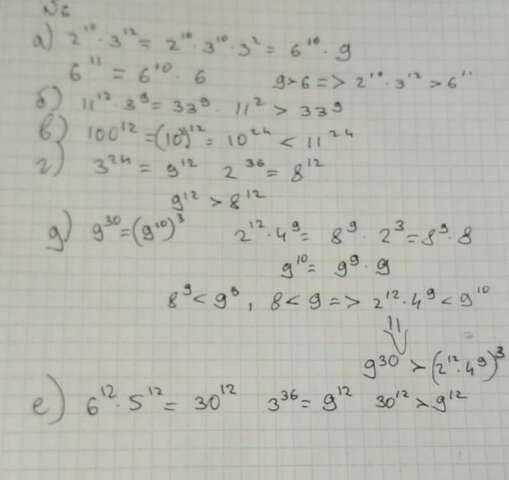 №6
а) 2¹⁰·3¹² = 2¹⁰·3¹⁰·3² = 6¹⁰·9
6¹¹ = 6¹⁰·6 9>6 => 2¹⁰·3¹² > 6¹¹
б) 11¹²·3⁹ = 33⁹·11² > 33⁹
в) 100¹² = (10²)¹² = 10²⁴ < 11²⁴
г) 3²⁴ = 9¹² 2³⁶ = 8¹²
9¹² > 8¹²
д) 9³⁰ = (9¹⁰)³ 2¹²·4⁹ = 8⁹·2³ = 8⁹·8
9¹⁰ = 9⁹·9
8⁹ < 9⁹, 8 < 9 => 2¹²·4⁹ < 9¹⁰
9³⁰ > (2¹²·4⁹)³
е) 6¹²·5¹² = 30¹² 3³⁶ = 9¹² 30¹² > 9¹²